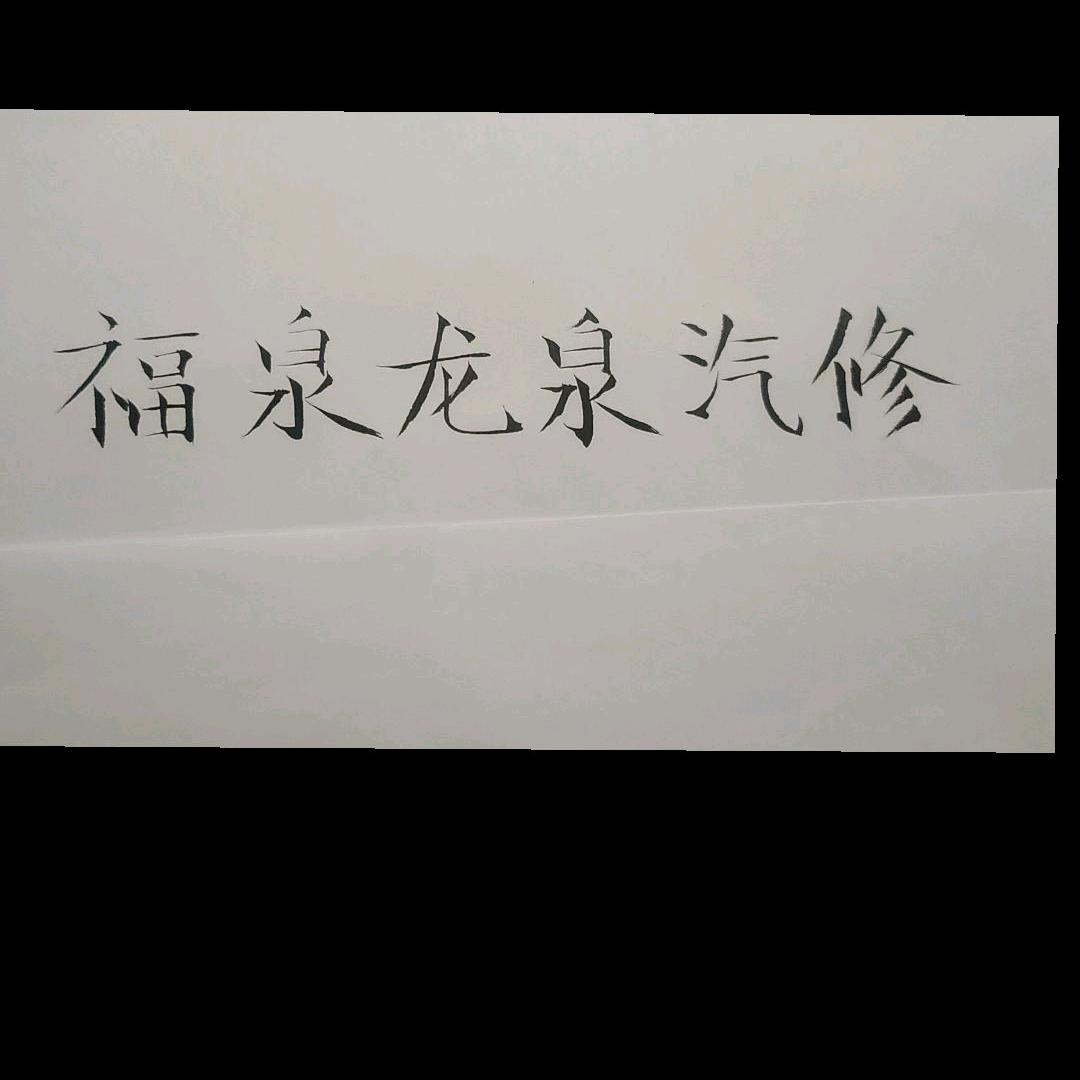 福泉龙泉汽修